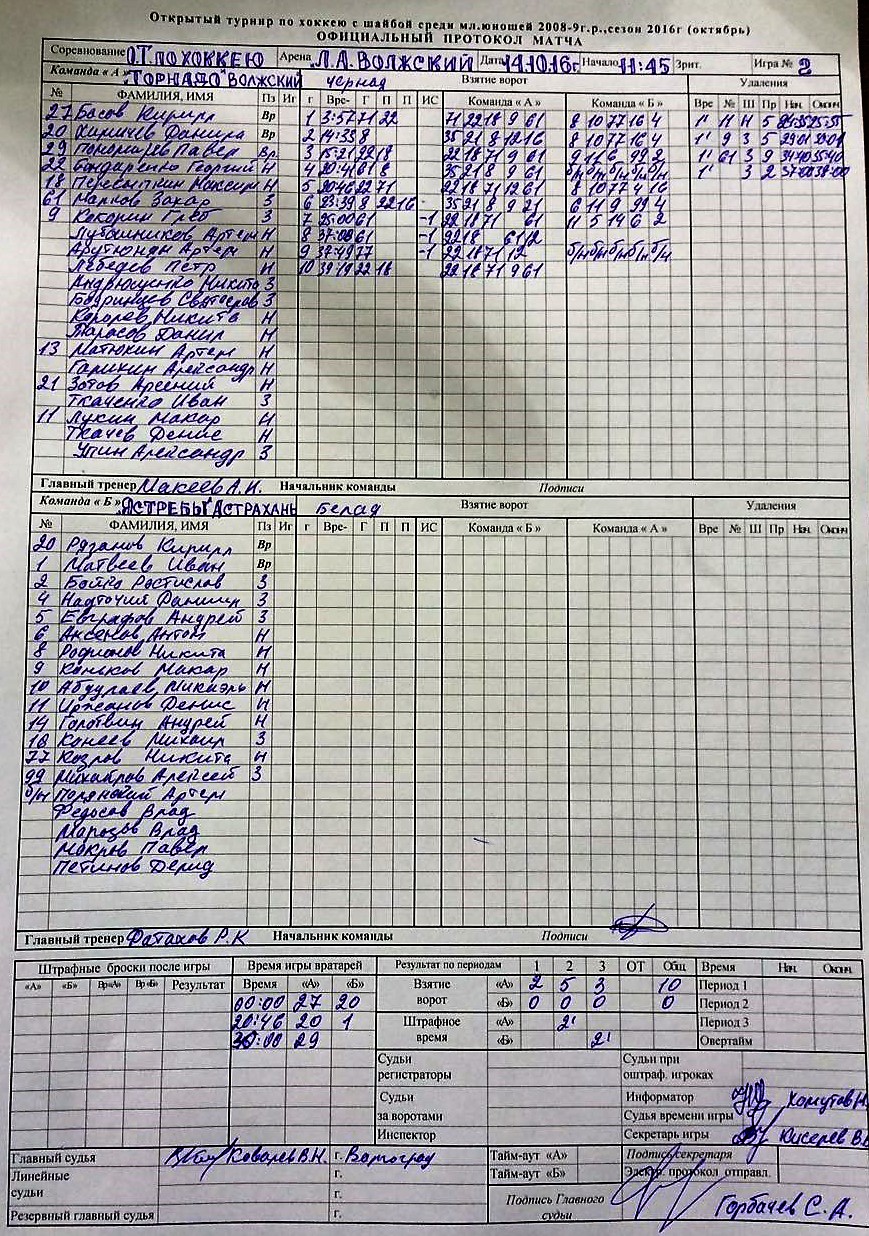 Открытый турнир по хоккею с шайбой среди мл.юношей 2008-9г.р.,сезон 2016г (октябрь)
ОФИЦИАЛЬНЫЙ ПРОТОКОЛ МАТЧА
Соревнование ОТ ПО ХОККЕЮ Арена Л.А. ВОЛЖСКИЙ Дата 14.10.16г Начало 11:45 Зрит. Игра № 2
Команда « А » "ТОРНАДО" ВОЛЖСКИЙ Взятие ворот Удаления
№ ФАМИЛИЯ, ИМЯ Пз Иг г Вре- Г П П ИС Команда « А » Команда « Б » Вре № Ш Пр Нач Оконч
27 Басов Кирилл Вр 1 3:57 71 22 71 22 18 9 61 8 10 77 16 4 1' 11 Н 5
20 Данила Вр 2 14:33 8 35 21 8 12 16 8 10 77 16 4 1' 9 3 5 29:01 30:01
29 Павел Вр 3 15:21 22 18 22 18 71 9 61 9 11 6 99 2 1' 61 3 9 34:40 35:40
22 Бондаренко Георгий Н 4 20:41 61 8 35 21 8 9 61 б/н б/н б/н б/н 1' 3 2 37:00 38:00
18 Максим Н 5 20:46 22 71 22 18 71 12 61 8 10 77 4 16
61 Марков Захар З 6 23:39 8 22 16 35 21 8 9 21 6 11 9 99 4
9 Кокорин Глеб З 7 25:00 61 -1 22 18 71 61 11 5 14 6 2
Артем Н 8 37:00 61 -1 22 18 61 12
Арутюнян Артем Н 9 37:49 77 -1 22 18 71 12 б/н б/н б/н б/н б/н
Лебедев Петр Н 10 39:19 22 18 22 18 71 9 61
Андрющенко Никита З
Святослав З
Королев Никита Н
Тарасов Данил Н
13 Матюхин Артем Н
Гарихин Александр Н
21 Зотов Арсений Н
Ткаченко Иван З
11 Лукин Макар Н
Ткачев Денис Н
Упин Александр З
Главный тренер Макеев А.И. Начальник команды Подписи
Команда « Б » "ЯСТРЕБЫ" АСТРАХАНЬ Взятие ворот Удаления
№ ФАМИЛИЯ, ИМЯ Пз Иг г Вре- Г П П ИС Команда « Б » Команда « А » Вре № Ш Пр Нач Оконч
20 Рязанов Кирилл Вр
1 Матвеев Иван Вр
2 Бойко Ростислав З
4 Надточий З
5 Евграфов Андрей З
6 Аксенов Антон Н
8 Родионов Никита Н
9 Коньков Макар Н
10 Абдулаев Микаэль Н
11 Иржанов Денис Н
14 Голотвин Андрей Н
16 Конеев Михаил З
77 Козлов Никита Н
99 Михайлов Алексей З
б/н Полянский Артем
Федосов Влад
Марозов Влад
Мокров Павел
Петинов Делид
Главный тренер Фатахов Р.К Начальник команды Подписи
Штрафные броски после игры Время игры вратарей Результат по периодам 1 2 3 ОТ Общ Время Нач Оконч
«А» «Б» Вр«А» Вр«Б» Результат Время «А» «Б» Взятие ворот «А» 2 5 3 10 Период 1
00:00 27 20 «Б» 0 0 0 0 Период 2
20:46 20 1 Штрафное время «А» 2' Период 3
30:00 29 «Б» 2' Овертайм
Судьи регистраторы Судьи при оштраф. игроках
Судьи за воротами Информатор Хомутов Н.
Судья времени игры
Инспектор Секретарь игры Киселев В.
Главный судья Ковалев В.Н. г. Волгоград Тайм-аут «А» Подпись секретаря
Линейные судьи г. Тайм-аут «Б» Электр. протокол отправл.
г. Подпись Главного судьи Горбачев С.А.
Резервный главный судья г.